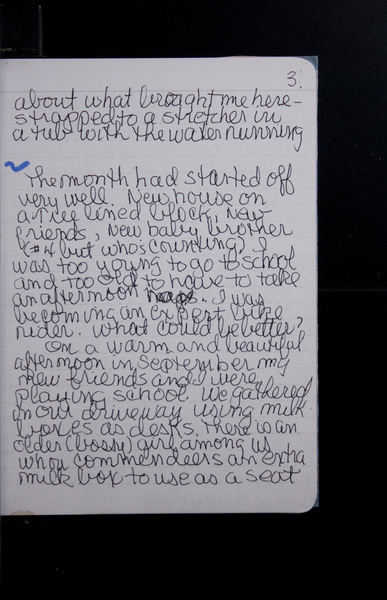 3.
about what brought me here -
strapped to a stretcher in
a tub with the water running
The month had started off
very well. New house on
a tree lined block, new
friends, new baby brother
(#4 but whos counting) I
was too young to go to school
and too old to have to take
an afternoon nap. I was
becoming an expert bike
rider. What could be better?
On a warm and beautiful
afternoon in September my
new friends and I were
playing school. We gathered
in our driveway using milk
boxes as desks. There is an
older (bossy) girl among us
who commendeers an extra
milk box to use as a seat